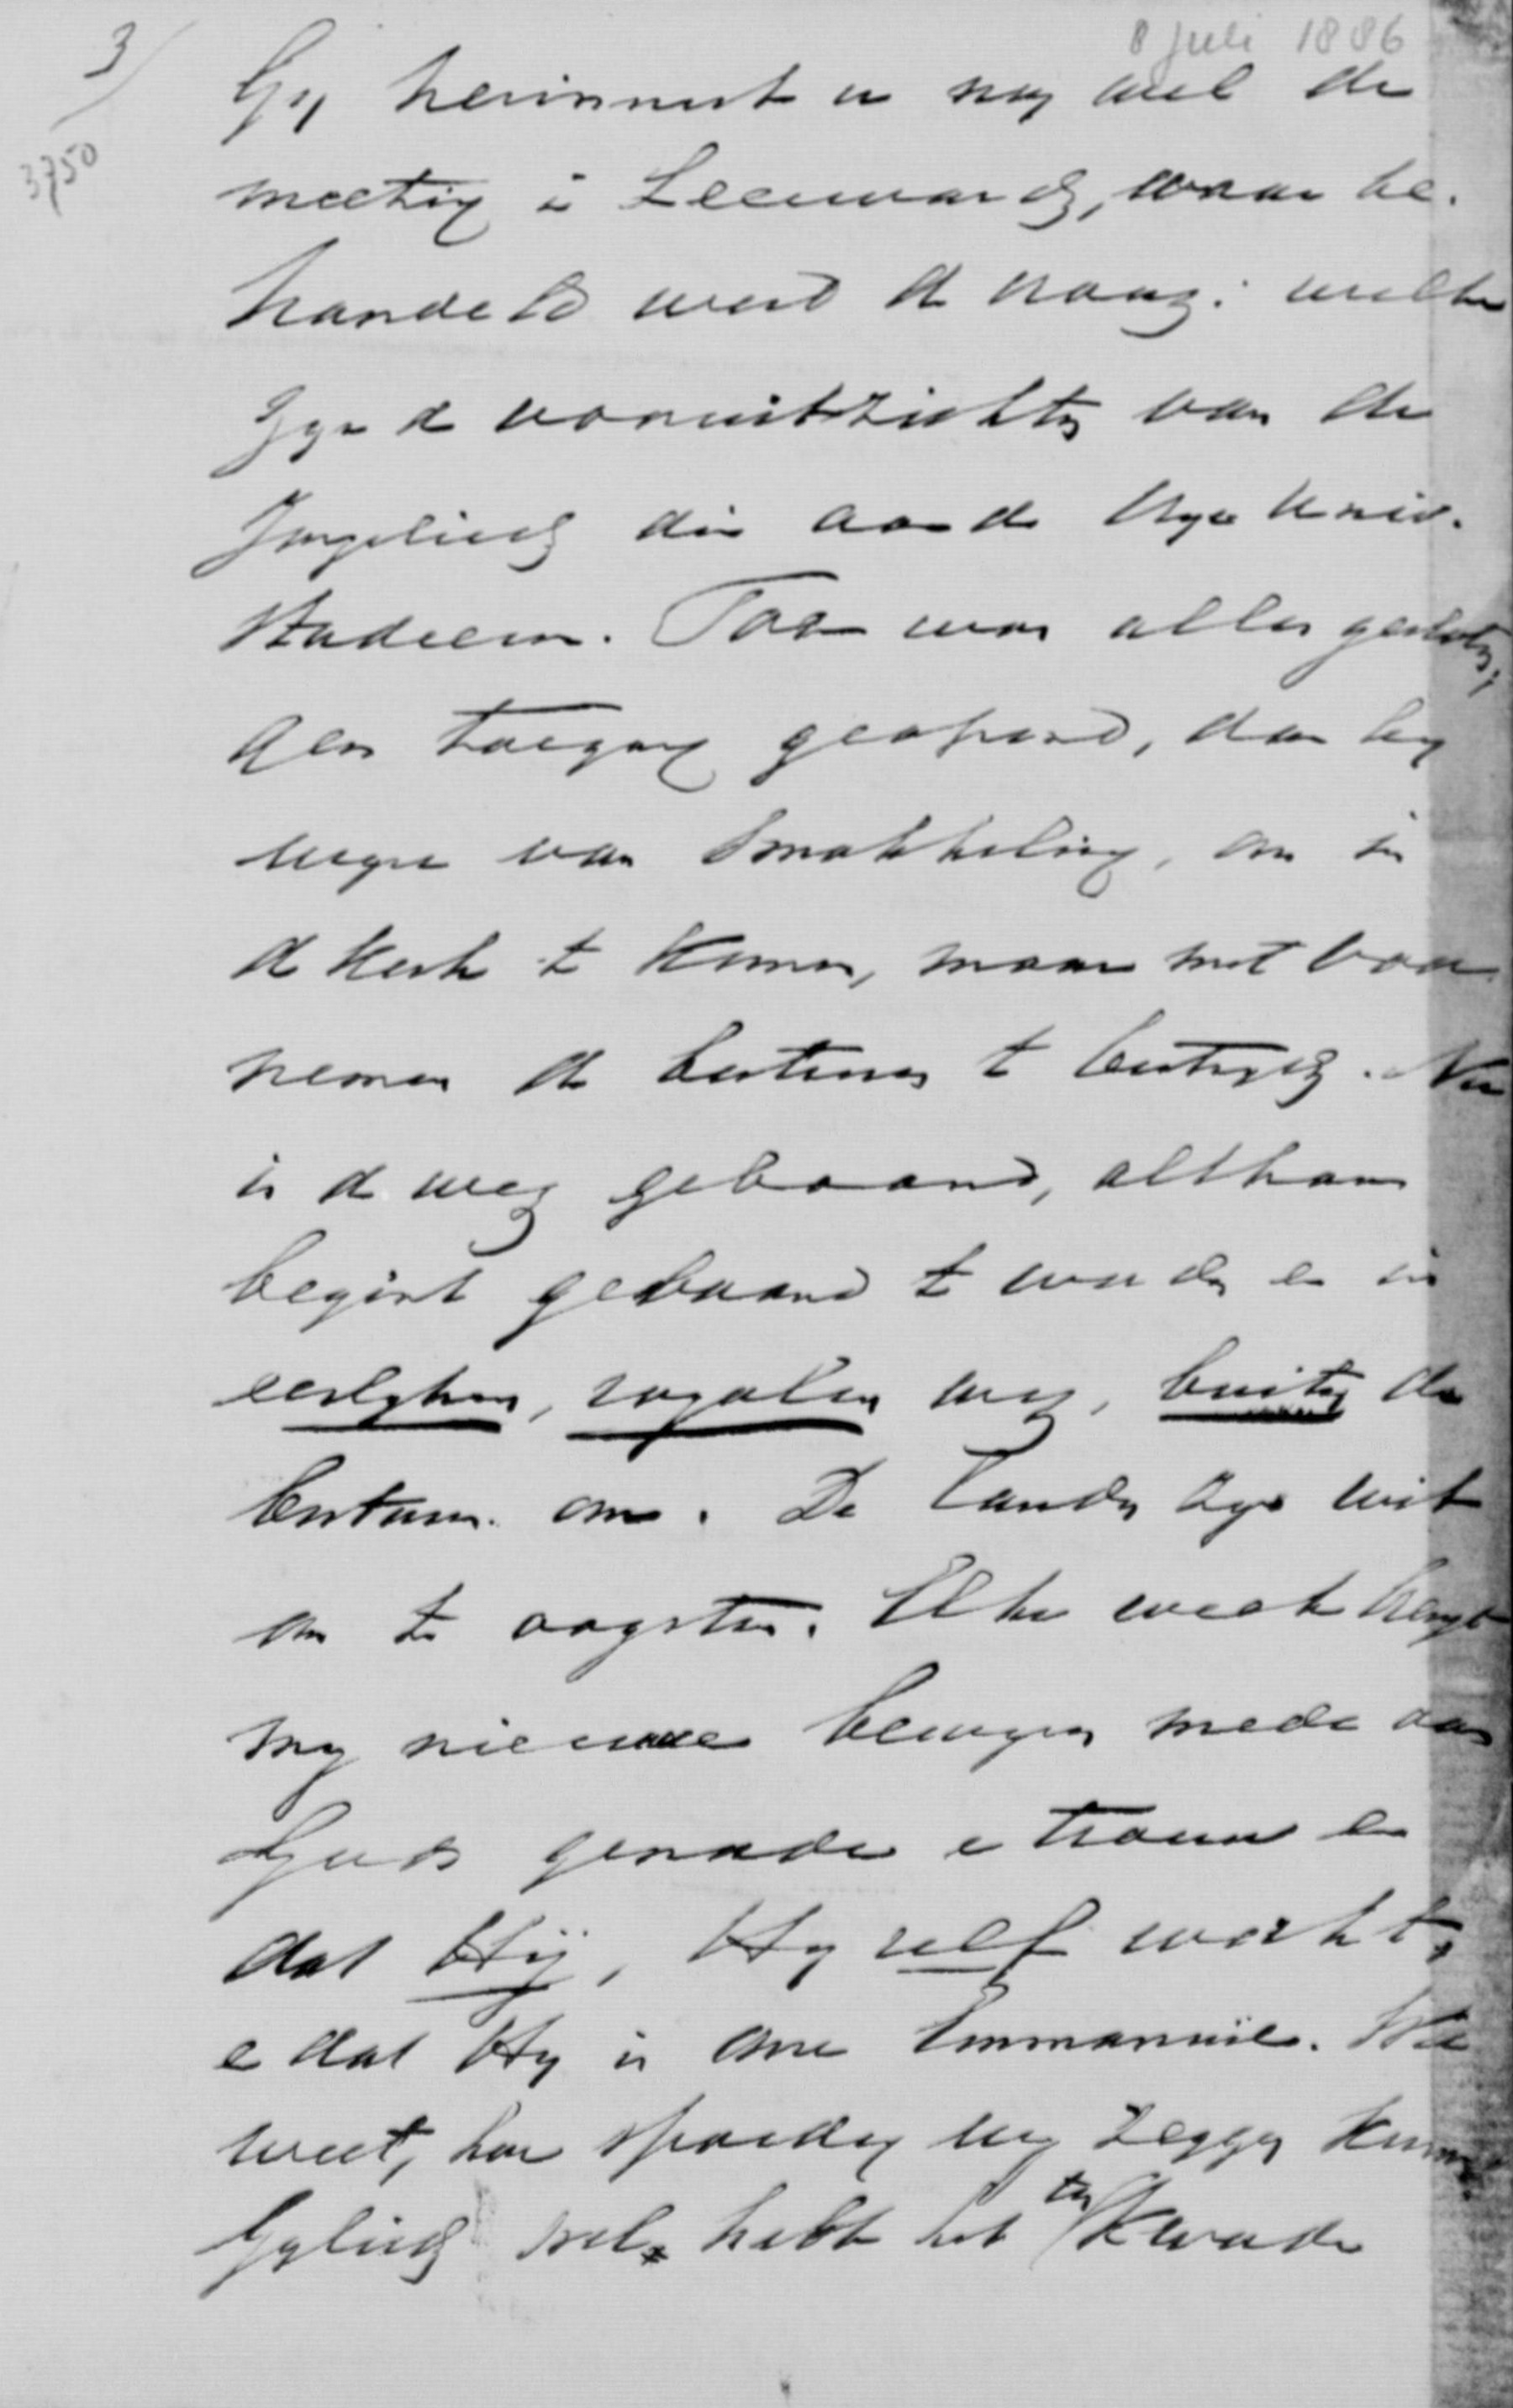 8 Juli 1886
3/
3750
Gij herinnert u nog wel de
meeting in Leeuwarden, waar be-
handeld werd de vraag: welke
zijn de vooruitzichten van de
Jongelieden die aan de Vrije Univ.
studeeren. Toen was alles gesloten,
geen toegang geopend, dan bij
wege van smokkeling, om in
de Kerk te komen, maar met voor
nemen de besturen te bestrijden. Nu
is de weg gebaand, althans
begint gebaand te worden en in
eerlijken, royalen weg, buiten de
besturen om. De landen zijn wit
om te oogsten. Elke week brengt
mij nieuwe bewijzen mede van
Gods genade en trouw en
dat Hij, Hij zelf werkt,
en dat Hij is onze Immanuël. Wie
weet, hoe spoedig wij zeggen kunnen
Gylieden wel hebt het ten kwade